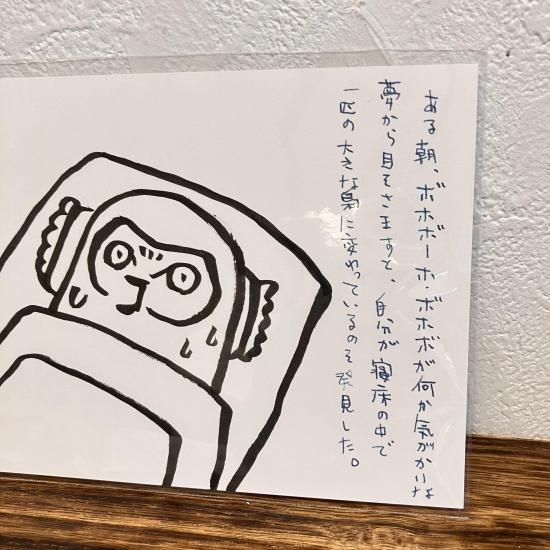 ある朝、ボホボーホ・ボホボが何か気がかいな
夢から目をさますと、自分が寝床の中で
一匹の大きな梟に変わっているのを発見した。